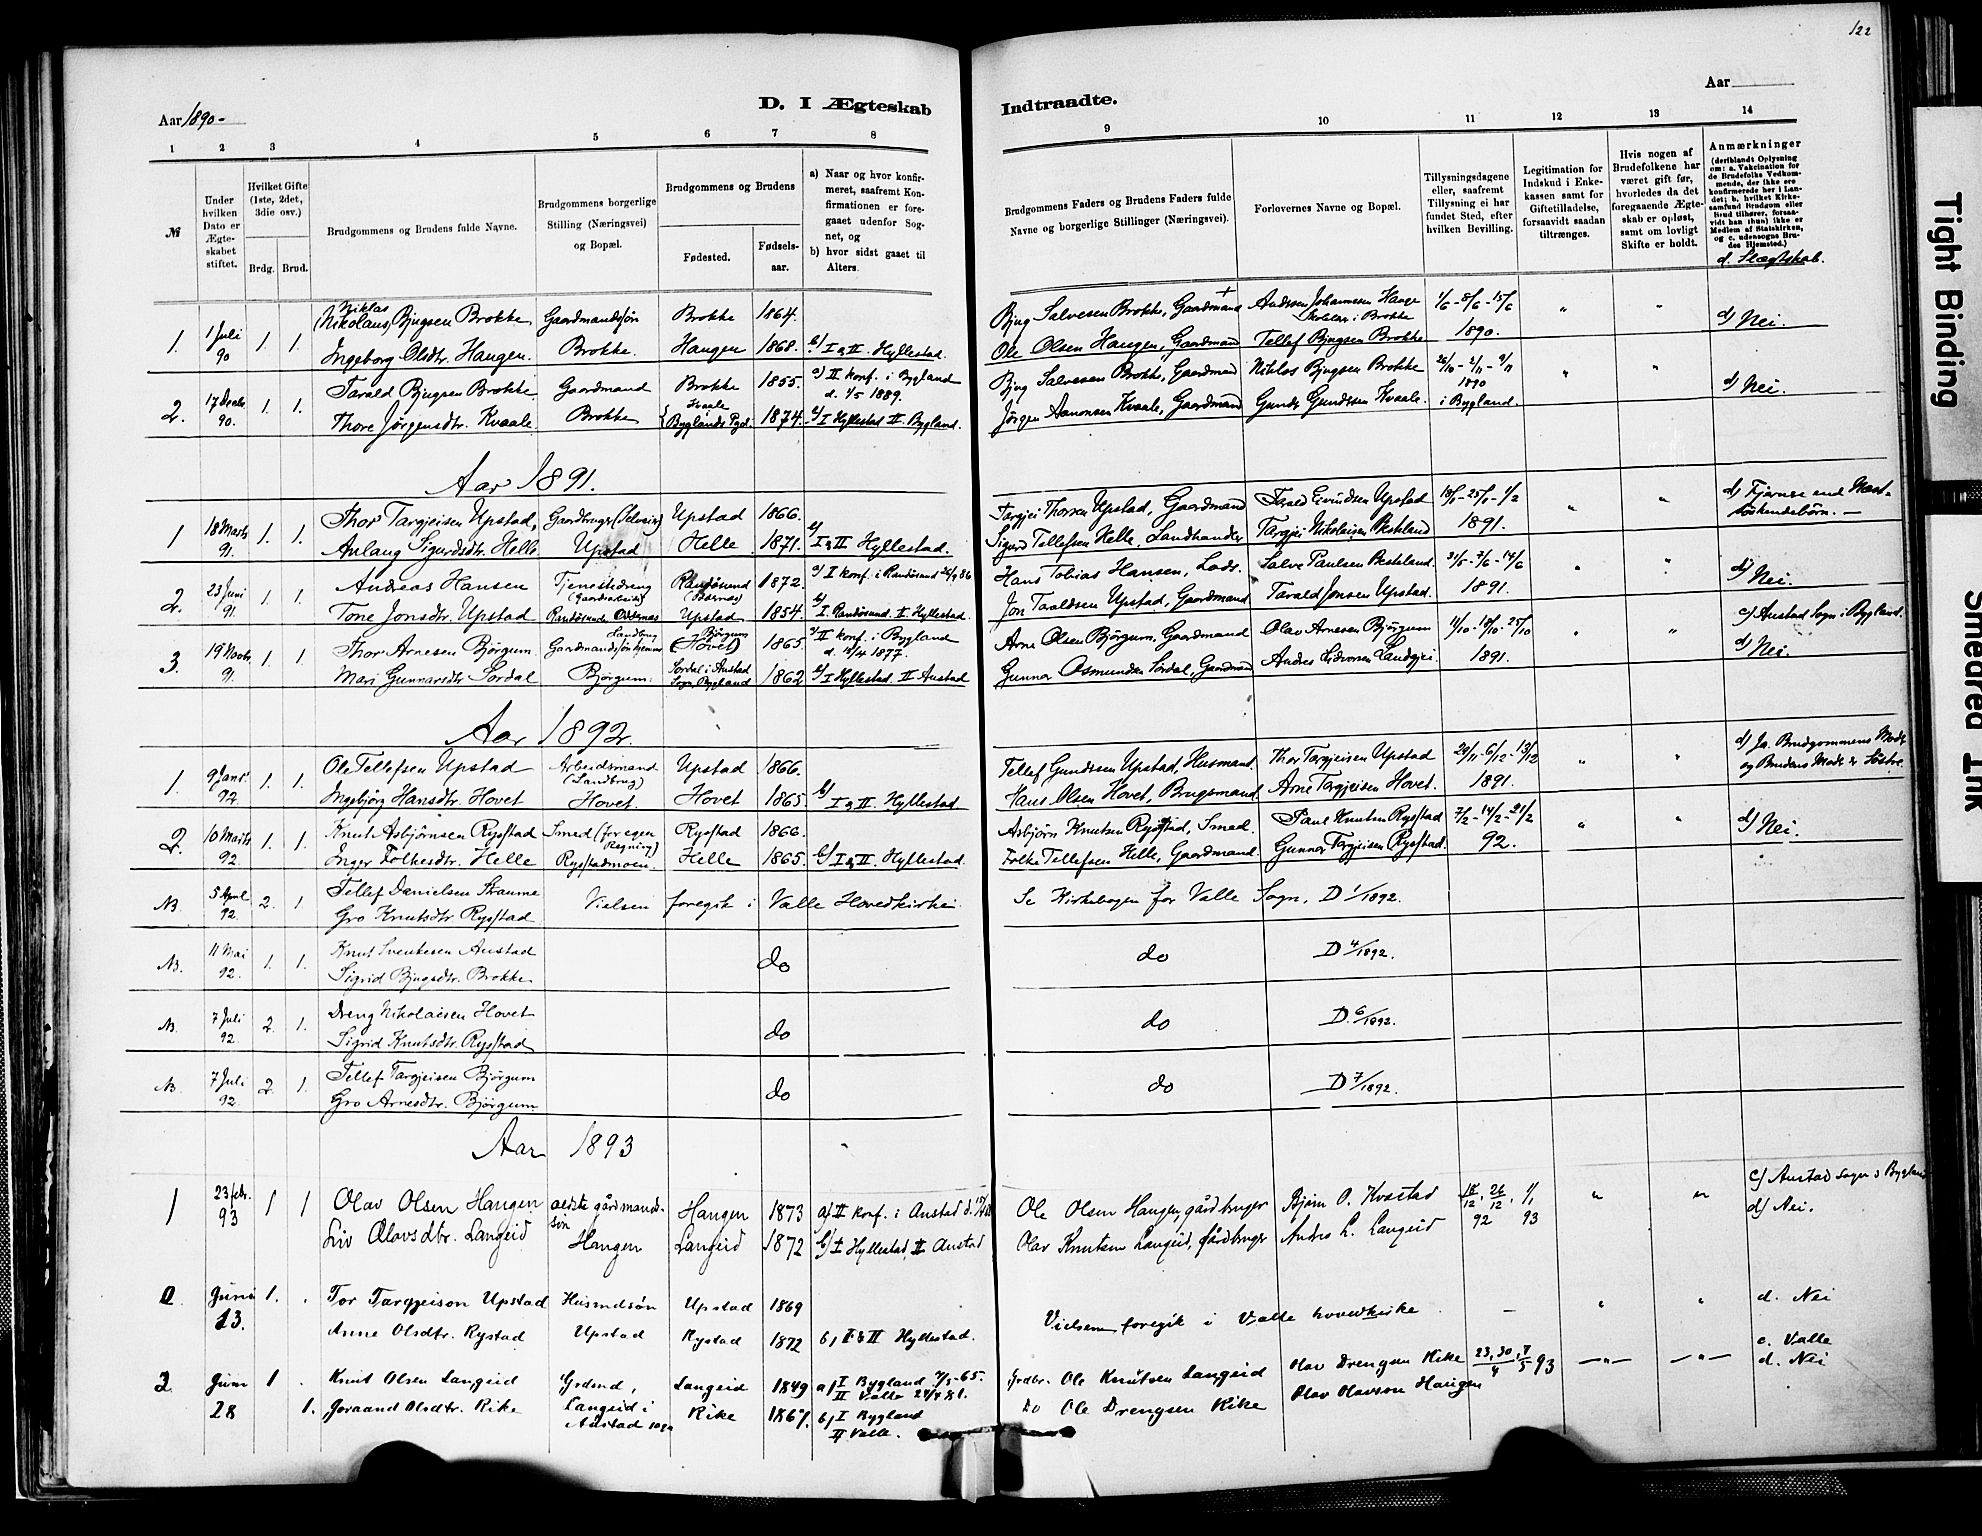 122
Aar 1890-
D. I Ægteskab
Indtraadte.
Aar
1 2 3 4 5 6 7 8
9 10 11 12 13 14
№
Under hvilken Dato er Ægteskabet stiftet.
Hvilket Gifte (1ste, 2det, 3die osv.)
Brdg. Brud.
Brudgommens og Brudens fulde Navne.
Brudgommens borgerlige Stilling (Næringsvei) og Bopæl.
Brudgommens og Brudens
Fødested.
Fødselsaar.
a) Naar og hvor konfirmeret, saafremt Konfirmationen er foregaaet udenfor Sognet, og
b) hvor sidst gaaet til Alters.
Brudgommens Faders og Brudens Faders fulde Navne og borgerlige Stillinger (Næringsvei).
Forlovernes Navne og Bopæl.
Tillysningsdagene eller, saafremt Tillysning ei har fundet Sted, efter hvilken Bevilling.
Legitimation for Indskud i Enkekassen samt for Giftetilladelse, forsaavidt saadan tiltrænges.
Hvis nogen af Brudefolkene har været gift før, hvorledes da det foregaaende Ægteskab er opløst, samt om lovligt Skifte er holdt.
Anmærkninger
(deriblandt Oplysning om: a. Vakcination for de Brudefolks Vedkommende, der ikke ere konfirmerede her i Landet; b. hvilket Kirkesamfund Brudgom eller Brud tilhører, forsaavidt han (hun) ikke er Medlem af Statskirken, og c. udensogns Brudes Hjemsted.)
d. Slægtskab.
1. 1 Juli 90 1. 1. Niklas (Nikolaus) Bjugsen Brokke Gaardmandssøn Brokke 1864.
Ingeborg Olsdtr. Haugen. Brokke. Haugen 1868. b/ I & II. Hyllestad.
Bjug Salvesen Brokke, Gaardmand + Andreas Johannessen Hauge i Brokke 1/6 - 8/6 - 15/6 " "
Ole Olsen Haugen, Gaardmand Tellef Bjugsen Brokke 1890. d) Nei.
2. 17 Decbr. 90. 1. 1. Tarald Bjugsen Brokke Gaardmand Brokke 1855. a) II konf. i Bygland d. 1/5 1889.
Thore Jørgensdtr. Kvaale Brokke Kvaale Byglands Pgd. 1874. b/ I Hyllestad II. Bygland.
Bjug Salvesen Brokke, Gaardmand Niklas Bjugsen Brokke 26/10 - 2/11 - 9/11 1890 " "
Jørgen Aanonsen Kvaale, Gaardmand Gunder Gundersen Kvaale. i Bygland. d) Nei.
Aar 1891.
1 18 Marts 91. 1. 1. Thor Targjeisen Upstad, Gaardbruger (Selveier) Upstad 1866.
Aulaug Sigurdsdtr. Helle Upstad Helle 1871. b/ I & II Hyllestad.
Targjei Thorsen Upstad, Gaardmand Tarald Eivindsen Upstad 18/1 - 25/1 - 1/2 " " d) Fjernere end Næst-
Sigurd Tellefsen Helle, Landhandler Targjei Nikolaisen Besteland 1891. søskendebørn. —
2. 23 Juni 91. 1. 1. Andreas Hansen Tjenestedreng (Gaardsarbeide) Randøsund (Odernæs) 1872. a) I konf. i Randøsund 26/9 86
Tone Jonsdtr. Upstad Randøsund Odernæs Upstad 1854. b/ I. Randøsund. II. Hyllestad.
Hans Tobias Hansen, Lods. Salve Paulsen Besteland. 31/5 - 7/6 - 14/6 " "
Jon Taraldsen Upstad, Gaardmand Tarald Jonsen Upstad. 1891. d) Nei.
3. 19 Novbr. 91. 1. 1. Thor Arnesen Bjørgum Gaardmandssøn Landbrug hjemme Bjørgum (Hovet) 1865. a) II konf. i Bygland d. 15/4 1877.
Mari Gunnarsdtr Sordal Bjørgum. Sordal i Austad Sogn, Bygland 1862 b/ I Hyllestad II. Austad
Arne Olsen Bjørgum, Gaardmand Olav Arnesen Bjørgum 11/10 - 18/10 - 25/10 " " c) Austad Sogn i Bygland.
Gunnar Osmundsen Sordal, Gaardmand Andres Eidvorsen Landgjei. 1891. d) Nei.
Aar 1892.
1. 9 Janr. 92 1. 1. Ole Tellefsen Upstad Arbeidsmand (Landbrug) Upstad 1866.
Ingebjørg Hansdtr. Hovet Hovet. Hovet 1865 b/ I & II. Hyllestad.
Tellef Gundersen Upstad, Husmand. Thor Targjeisen Upstad 29/11 - 6/12 - 13/12 " " d) Ja. Brudgommens Moder
Hans Olsen Hovet, Brugsmand. Arne Targjeisen Hovet. 1891. og Brudens Moder er Søstre.
2. 10 Marts 92. 1. 1. Knut Asbjørnsen Rysstad Smed (for egen Regning) Rysstad 1866.
Inger Folkesdtr. Helle Rysstadmoen. Helle 1865. b/ I & II. Hyllestad.
Asbjørn Knutsen Rysstad, Smed. Paul Knutsen Rysstad 7/2 - 14/2 - 21/2 " "
Folke Tellefsen Helle, Gaardmand. Gunnar Targjeisen Rysstad. 92. d) Nei.
NB. 5 April 92. 2. 1 Tellef Danielsen Straume
Gro Knutsdtr Rysstad Vielsen foregik i Valle Hovedkirke. Se Kirkebogen for Valle Sogn. D 1/1892.
NB. 11 Mai 92. 1. 1. Knut Svenkesen Austad
Sigrid Bjugsdtr. Brokke do do D 4/1892.
NB. 7 Juli 92. 2. 1. Dreng Nikolaisen Hovet
Sigrid Knutsdtr. Rysstad do do D. 6/1892.
NB. 7 Juli 92. 2. 1. Tellef Targjeisen Bjørgum
Gro Arnesdtr. Bjørgum do do D 7/1892.
Aar 1893
1 23 febr. 93 1 1 Olav Olsen Haugen ældste gårdmands-søn Haugen 1873 a) II konf. i Austad d.
Liv Olavsdtr. Langeid Haugen Langeid 1872 b/ I Hyllestad, II Austad
Ole Olsen Haugen, gårdbruger Bjørn O. Kvastad 18/12 92, 26/12, 1/1 93 " " c) Austad Sogn i Bygland
Olav Knutsen Langeid, gårdbruger Andres L. Langeid d) Nei.
Juni 13. 1. . Tor Targjeison Upstad Husmdsøn Upstad 1869
Anne Olsdtr. Rystad Upstad Rystad 1872 b, I & II Hyllestad.
Vielsen foregik i Valle hovedkirke — " " d. Nei
3. Juni 28 1 1. Knut Olsen Langeid Grdmd, Langeid 1849 a) I Bygland 7/5-65. II Valle 24/4 81.
Joraand Olsdtr. Rike Langeid i Austad sogn Rike 1867. b) I Bygland II Valle.
Grdbr. Ole Knutsen Langeid Olav Drengsen Rike 23, 30/4, 7/5 93 —"— —"— c. Valle
Do Ole Drengsen Rike Olav Olavson Haugen d. Nei
Tight Binding
Smeared Ink